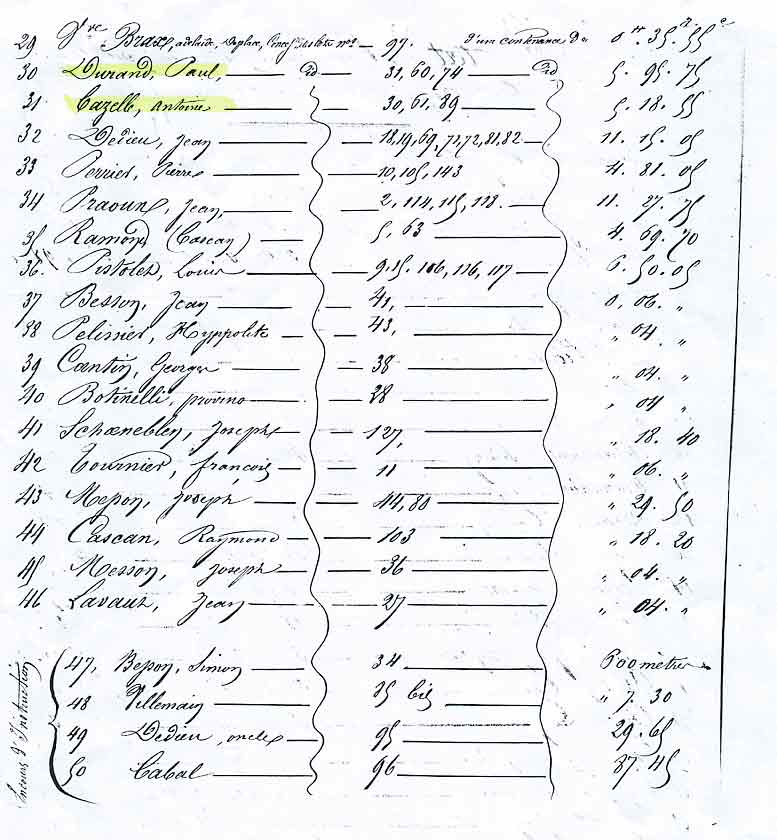 29 Vve Brax, adelaïde, Deplace, Concess. des lots nos — 97. d'une contenance de 0 hr. 35 a. 55 c
30 Durand, Paul, — id — 31, 60, 74 — id 5. 95. 75
31 Cazelle, antoine — 30, 61, 89 — 5. 18. 55
32 Dedieu, Jean — 18, 19, 69, 71, 72, 81, 82 — 11. 15. 05
33 Perrier, Pierre — 10, 105, 143 — 4. 81. 05
34 Praoux, Jean, — 2, 114, 115, 128. — 11. 27. 75
35 Ramond (Cascan) — 5, 63 — 4. 69. 70
36 Pistoles, Louis — 9. 15. 106, 116, 117 — 6. 50. 05
37 Besson, Jean — 41, — 0. 06. "
38 Pelissier, Hyppolite — 43, — " 04. "
39 Cantin, Georges — 38 — " 04. "
40 Botinelli, provino — 28 — " 04 "
41 Schœneblen, Joseph — 127, — " 18. 40
42 Tournier, françois — 11 — " 06. "
43 Messon, Joseph — 44, 80 — " 29. 50
44 Cascan, Raymond — 103 — " 18. 20
45 Messon, Joseph — 36 — " 04. "
46 Lavaux, Jean — 27 — " 04. "
47, Besson, Simon — 34 — 600 mètres
48 Villemain — 35 bis — " 7. 30
49 Dedieu, oncle — 95 — 29. 65
50 Cabal — 96 — 87. 45
En cours d'Instruction